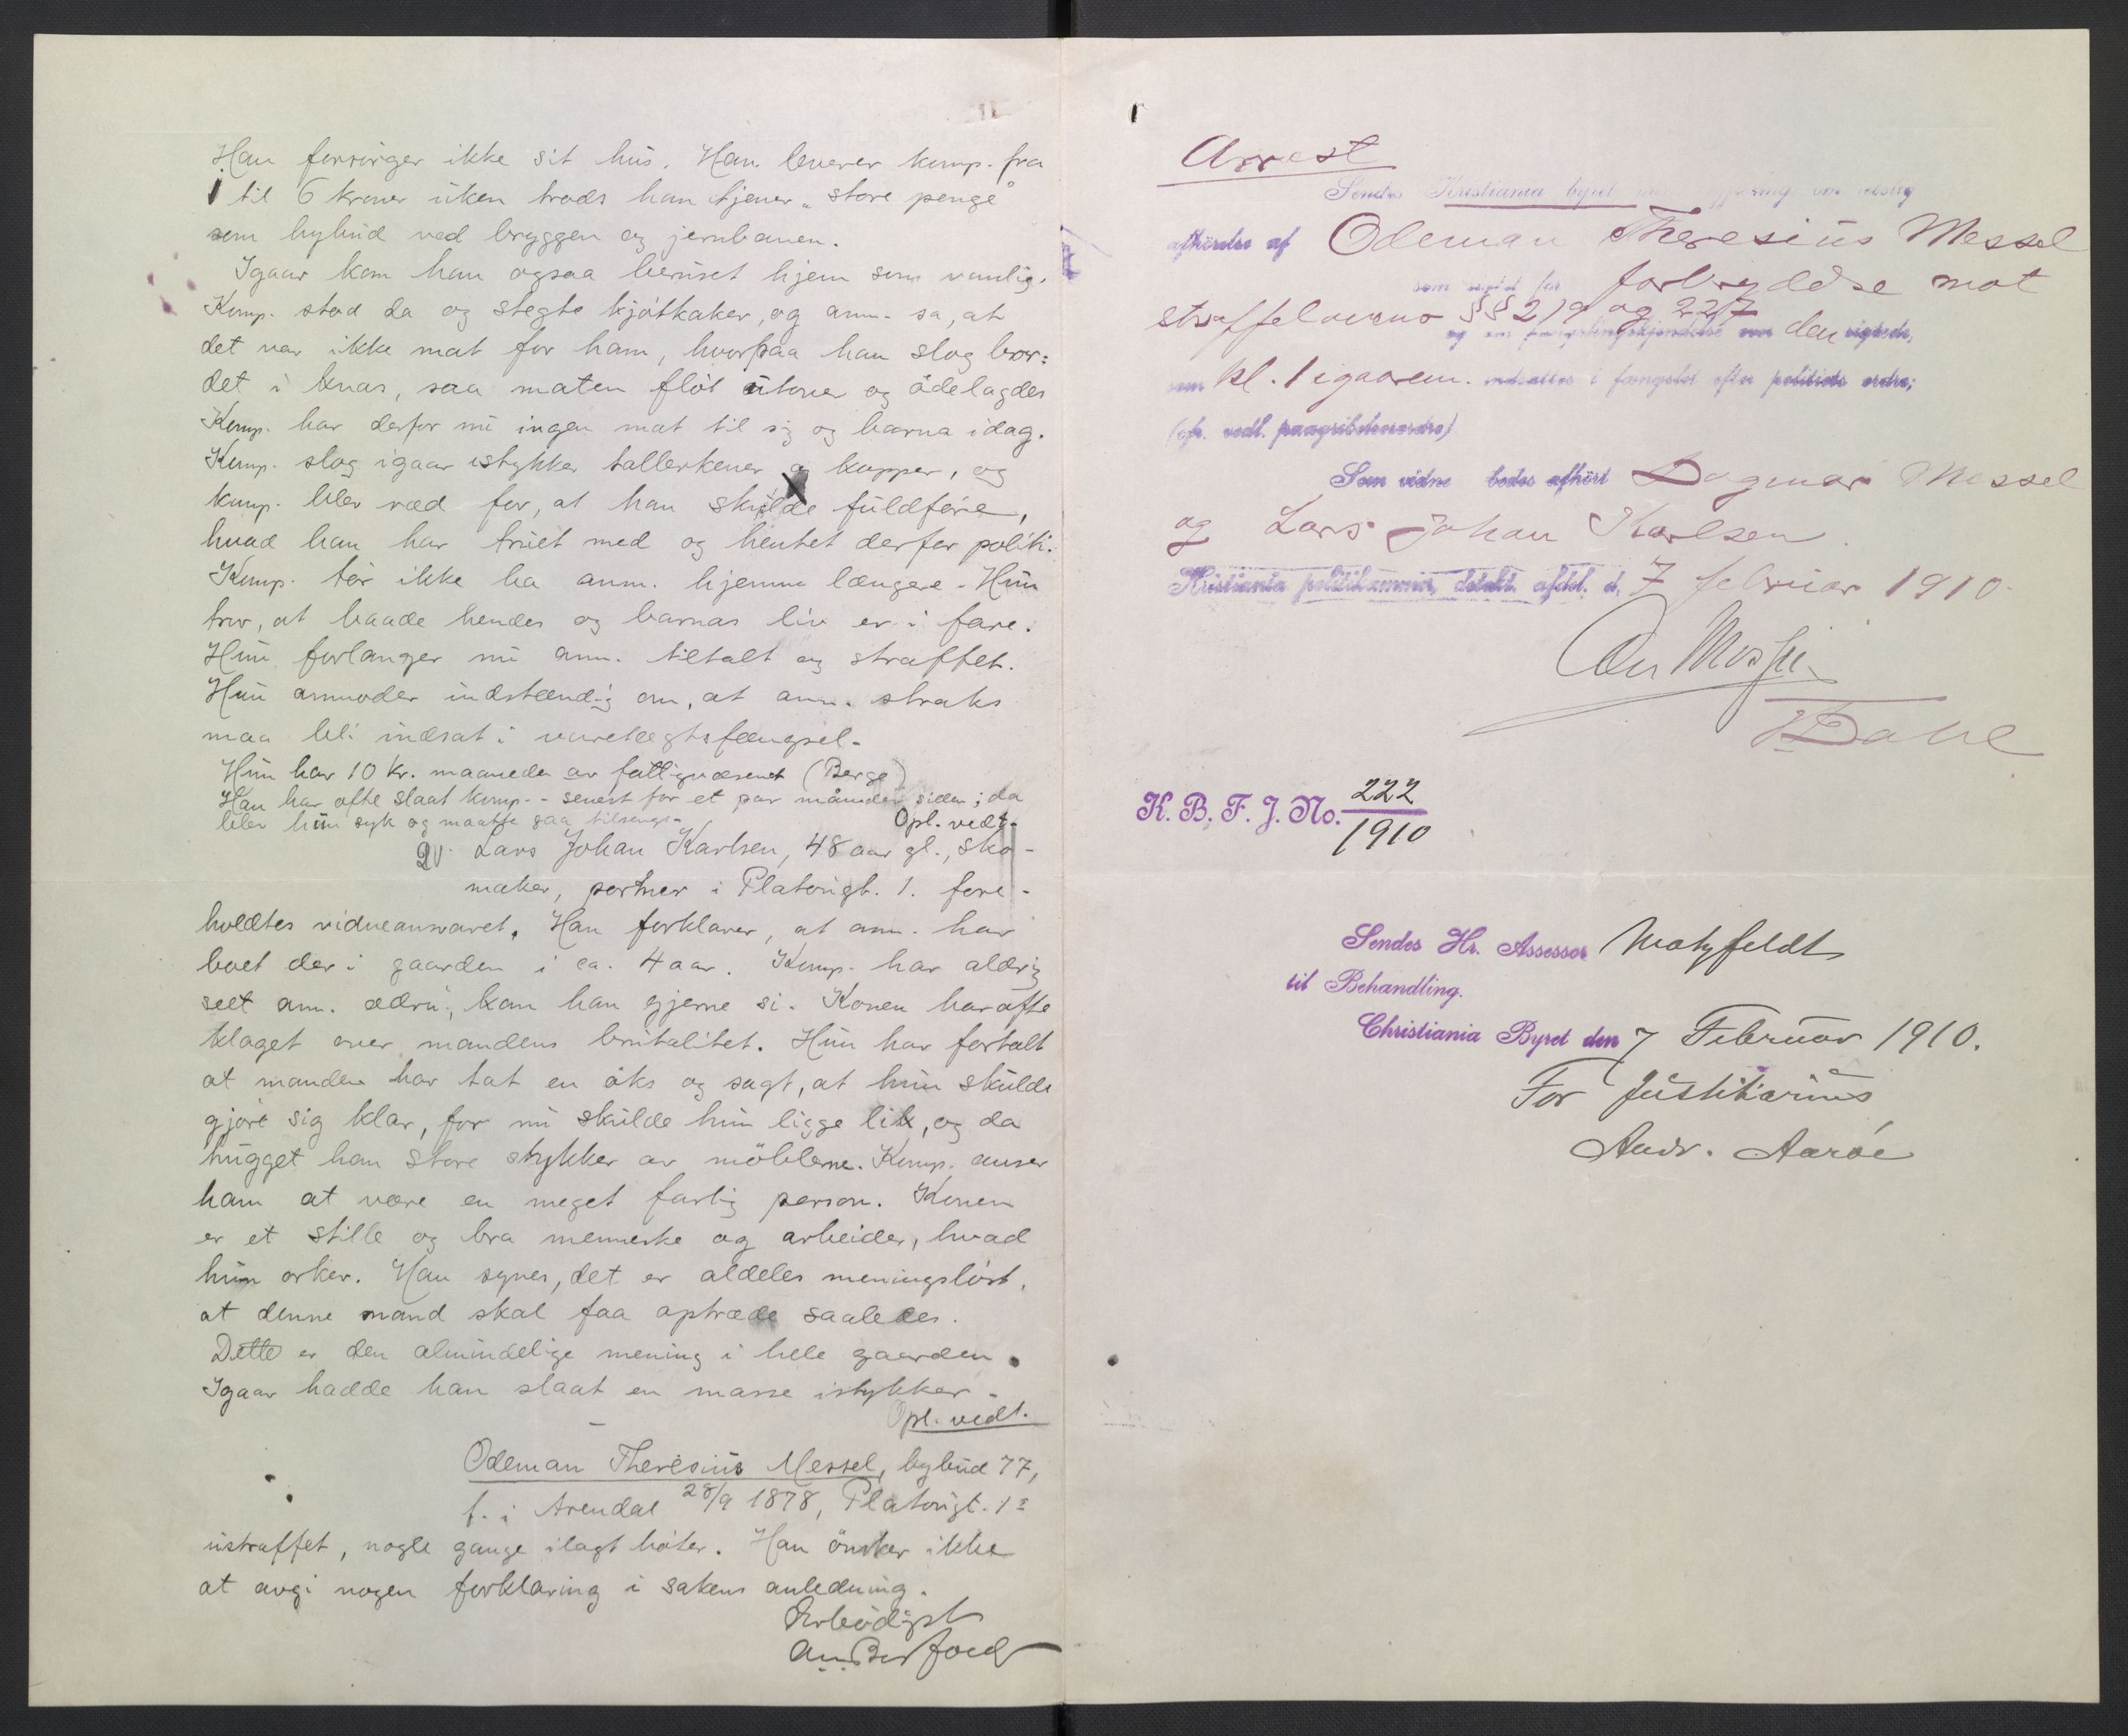 Han forsørger ikke sit hus. Han leverer komp. fra
1 til 6 kroner uken trods han tjener „store penge"
som bybud ved bryggen og jernbanen.
Igaar kom han ogsaa beruset hjem som vanlig.
Komp. stod da og stegte kjøtkaker, og anm. sa, at
det var ikke mat for ham, hvorpaa han slog bor=
det i knas, saa maten fløt utover og ødelagdes
Komp. har derfor nu ingen mat til sig og barna idag.
Komp. slog igaar istykker tallerkener og kopper, og
komp. blev ræd for, at han skulde fuldføre,
hvad han har truet med og hentet derfor politi.
Komp. tør ikke ha anm. hjemme længere. Hun
tror, at baade hendes og barnas liv er i fare.
Hun forlanger nu anm. tiltalt og straffet.
Hun anmoder indstændig om, at anm. straks
maa bli indsat i varetægtsfængsel.
Hun har 10 kr. maaneden av fattigvæsenet (Berge)
Han har ofte slaat komp. - senest for et par måneder siden; da
blev hun syk og maatte gaa tilsengs.
Opl. vedt.
2v. Lars Johan Karlsen, 48 aar gl., sko-
maker, portner i Platousgt. 1. fore-
holdtes vidneansvaret. Han forklarer, at anm. har
boet der i gaarden i ca. 4 aar. Komp. har aldrig
seet anm. ædru, kan han gjerne si. Konen har ofte
klaget over mandens brutalitet. Hun har fortalt
at manden har tat en øks og sagt, at hun skulde
gjøre sig klar, for nu skulde hun ligge lik, og da
hugget han store stykker av møblerne. Komp. anser
ham at være en meget farlig person. Konen
er et stille og bra menneske og arbeider, hvad
hun orker. Han synes, det er aldeles meningsløst,
at denne mand skal faa optræde saaledes.
Dette er den almindelige mening i hele gaarden.
Igaar hadde han slaat en masse istykker.
Opl. vedt.
Odeman Theresius Messel, bybud 77,
f. i Arendal 28/9 1878, Platousgt. 1
ustraffet, nogle gange ilagt bøter. Han ønsker ikke
at avgi nogen forklaring i sakens anledning.
Ærbødigst
Arrest
Sendes Kristiania byret
afhørelse af Odeman Theresius Messel
som sigtet for forbrydelse mot
straffelovens §§ 219 og 227
og om fængslingskjendelse over den sigtede,
som kl. 1 igaar em. indsattes i fængslet efter politiets ordre;
(cfr. vedl. paagribelsesordre)
Som vidne bedes afhørt Dagmar Messel
og Lars Johan Karlsen.
Kristiania politikammer, detekt. afdel. d. 7 februar 1910.
Dahl
K. B. F. J. No. 222
1910
Sendes Hr. Assessor Motzfeldt
til Behandling.
Christiania Byret den 7 Februar 1910.
For Justitiarius
Andr. Aarøe